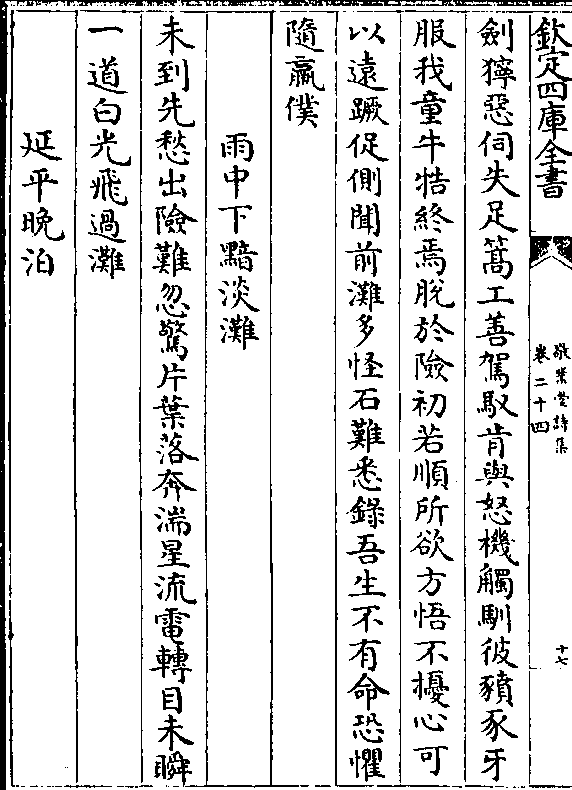 欽定四庫全書
敬業堂詩集
卷二十四
十七
劍獰惡伺失足篙工善駕馭肯與怒機觸馴彼豶豕牙
服我童牛牿終焉脫於險初若順所欲方悟不擾心可
以遠蹶促側聞前灘多怪石難悉錄吾生不有命恐懼
隨羸僕
雨中下黯淡灘
未到先愁出險難忽驚片葉落奔湍星流電轉目未瞬
一道白光飛過灘
延平晚泊